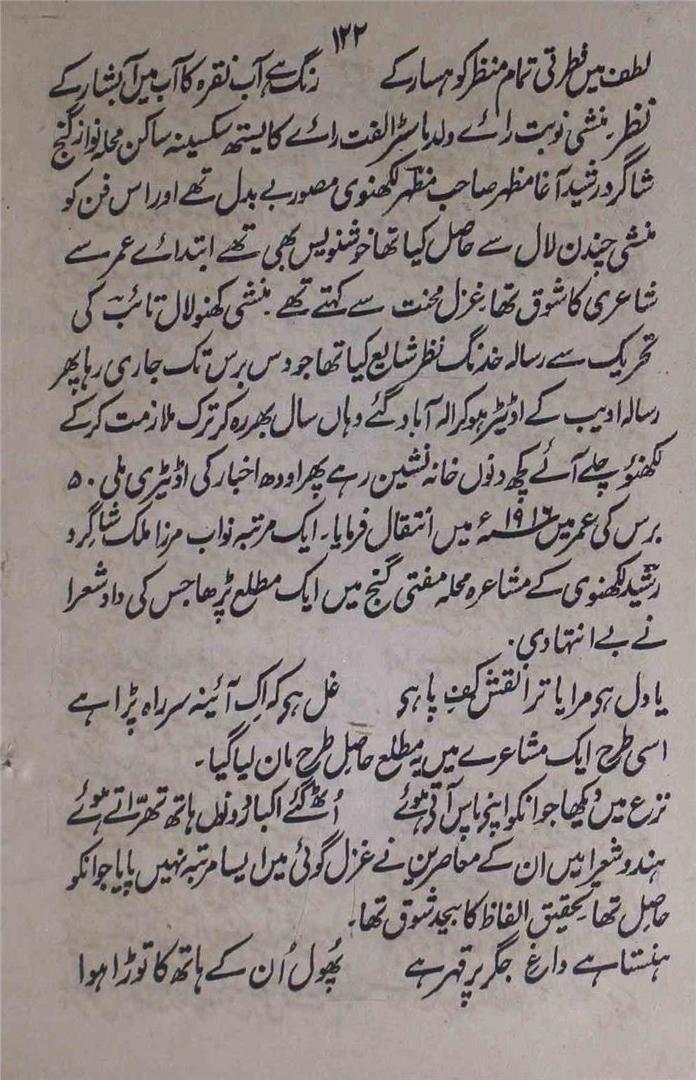 ۱۲۲
لطف ہیں فطرتی تمام منظر کوہسار کے رنگ ہے آب نقرہ کا آب میں آبشار کے
نظر۔ منشی نوبت رائے ولد ماسٹر الفت رائے کایستھ سکسینہ ساکن محلہ نواز گنج
شاگرد رشید آغا مظہر صاحب مظہر لکھنوی مصور بے بدل تھے اور اس فن کو
منشی چندن لال سے حاصل کیا تھا خوشنویس بھی تھے ابتدائے عمر سے
شاعری کا شوق تھا غزل محنت سے کہتے تھے۔ منشی کھنولال تائب کی
تحریک سے رسالہ خدنگ نظر شایع کیا تھا جو دس برس تک جاری رہا پھر
رسالہ ادیب کے اڈیٹر ہوکر الہ آباد گئے وہاں سال بھر رہ کر ترک ملازمت کرکے
لکھنؤ چلے آئے کچھ دنوں خانہ نشین رہے پھر اودھ اخبار کی اڈیٹری ملی ۵۰
برس کی عمر میں ۱۹۱۶ء میں انتقال فرمایا۔ ایک مرتبہ نواب مرزا ملک شاگرد
رشید لکھنوی کے مشاعرہ محلہ مفتی گنج میں ایک مطلع پڑھا جس کی داد شعرا
نے بے انتہا دی۔
یا دل ہو مرا یا ترا نقش کفِ پا ہو غل ہو کہ اِک آئینہ سرِ راہ پڑا ہے
اسی طرح ایک مشاعرے میں یہ مطلع حاصِل طرح مان لیا گیا۔
نزع میں دیکھا جو انکو اپنی پاس آتی ہوئے اُٹھ گئے اکبار دونوں ہاتھ تھرّاتے ہوئے
ہندو شعرا میں ان کے معاصرین نے غزل گوئی میں ایسا مرتبہ نہیں پایا جو انکو
حاصِل تھا تحقیق الفاظ کا بیحد شوق تھا۔
ہنستا ہے داغِ جگر پر قہر ہے پُھول اُن کے ہاتھ کا توڑا ہوا